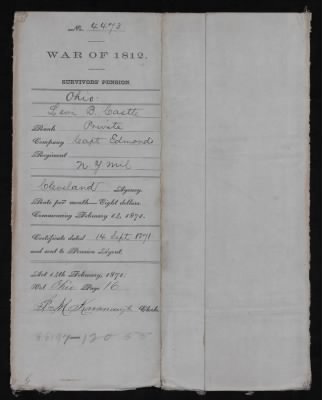 No. 4473
WAR OF 1812.
SURVIVORS' PENSION
Ohio.
Levi B. Castle
Rank Private
Company Capt Edmond
Regiment
N Y Mil
Cleveland Agency.
Rate per month—Eight dollars.
Commencing February 14, 1871.
Certificate dated 14 Sept. 1871
and sent to Pension Agent.
Act 14th February, 1871.
Vol. Ohio Page 16
M Kavanaugh Clerk.